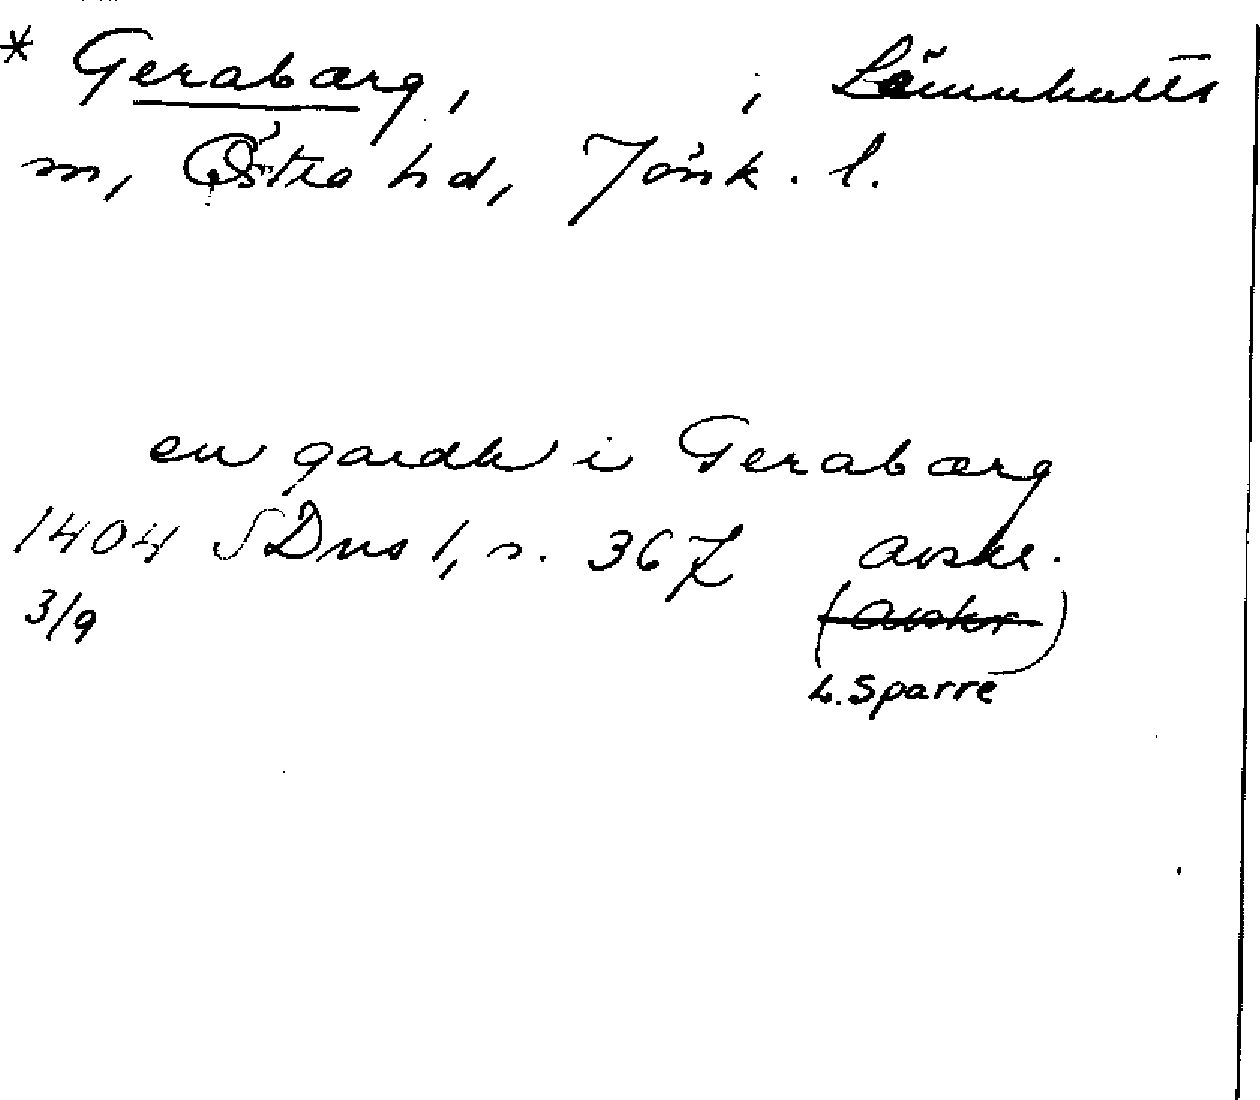 * Gerabærg, , Lannakatts
m, Östra hd, Jönk. l.
en gardh i Gerabærg
1404 SDns 1, s. 367 avskr.
3/9 (avskr)
L. Sparre